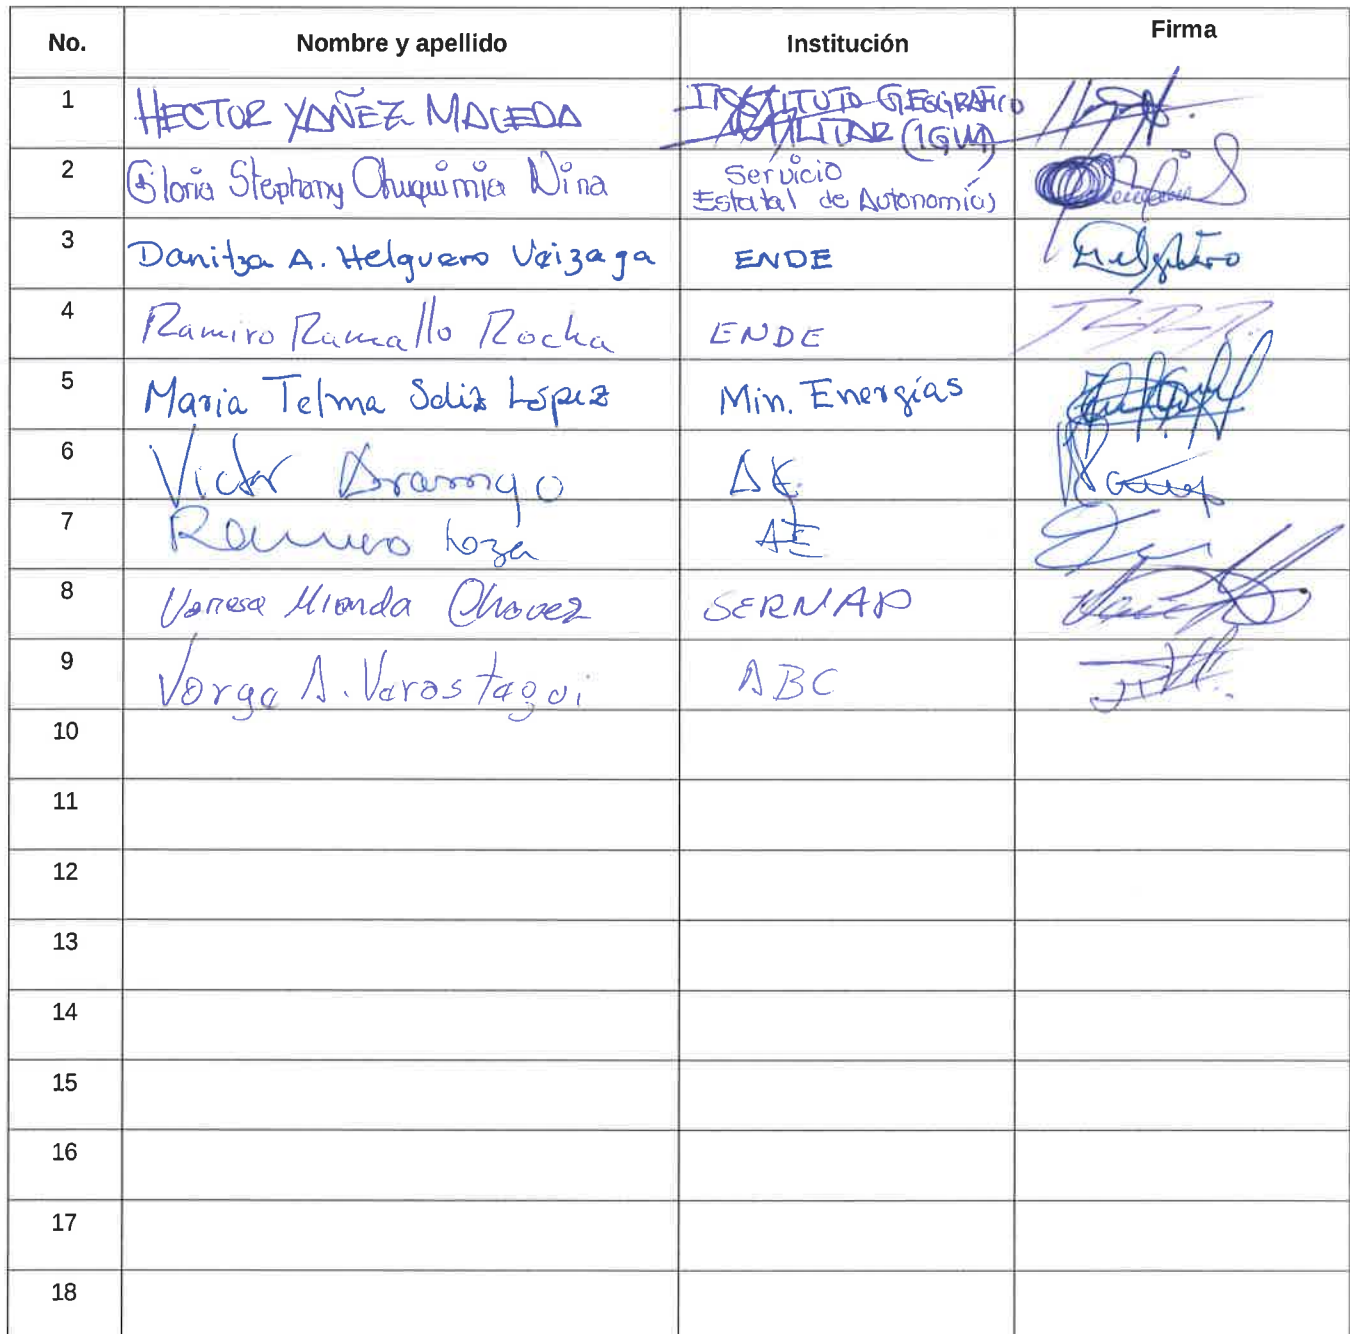 No. Nombre y apellido Institución Firma
1 HECTOR YAÑEZ MACEDA INSTITUTO GEOGRAFICO
MILITAR (IGM)
2 Gloria Stephany Chuquimia Nina Servicio
Estatal de Autonomías
3 Danitza A. Helguero Veizaga ENDE
4 Ramiro Ramallo Rocha ENDE
5 Maria Telma Soliz López Min. Energías
6 Victor Aramayo AE
7 Ramiro Loza AE
8 Vanesa Miranda Chavez SERNAP
9 A. ABC
10
11
12
13
14
15
16
17
18